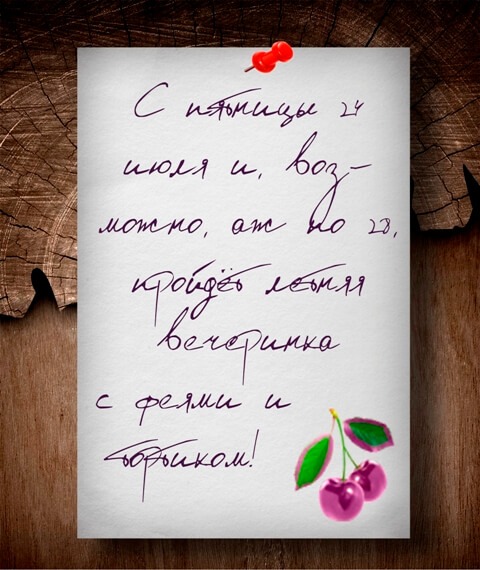 С пятницы 24
июля и, воз-
можно, аж по 28,
пройдёт летняя
вечеринка
с феями и
тортиком!